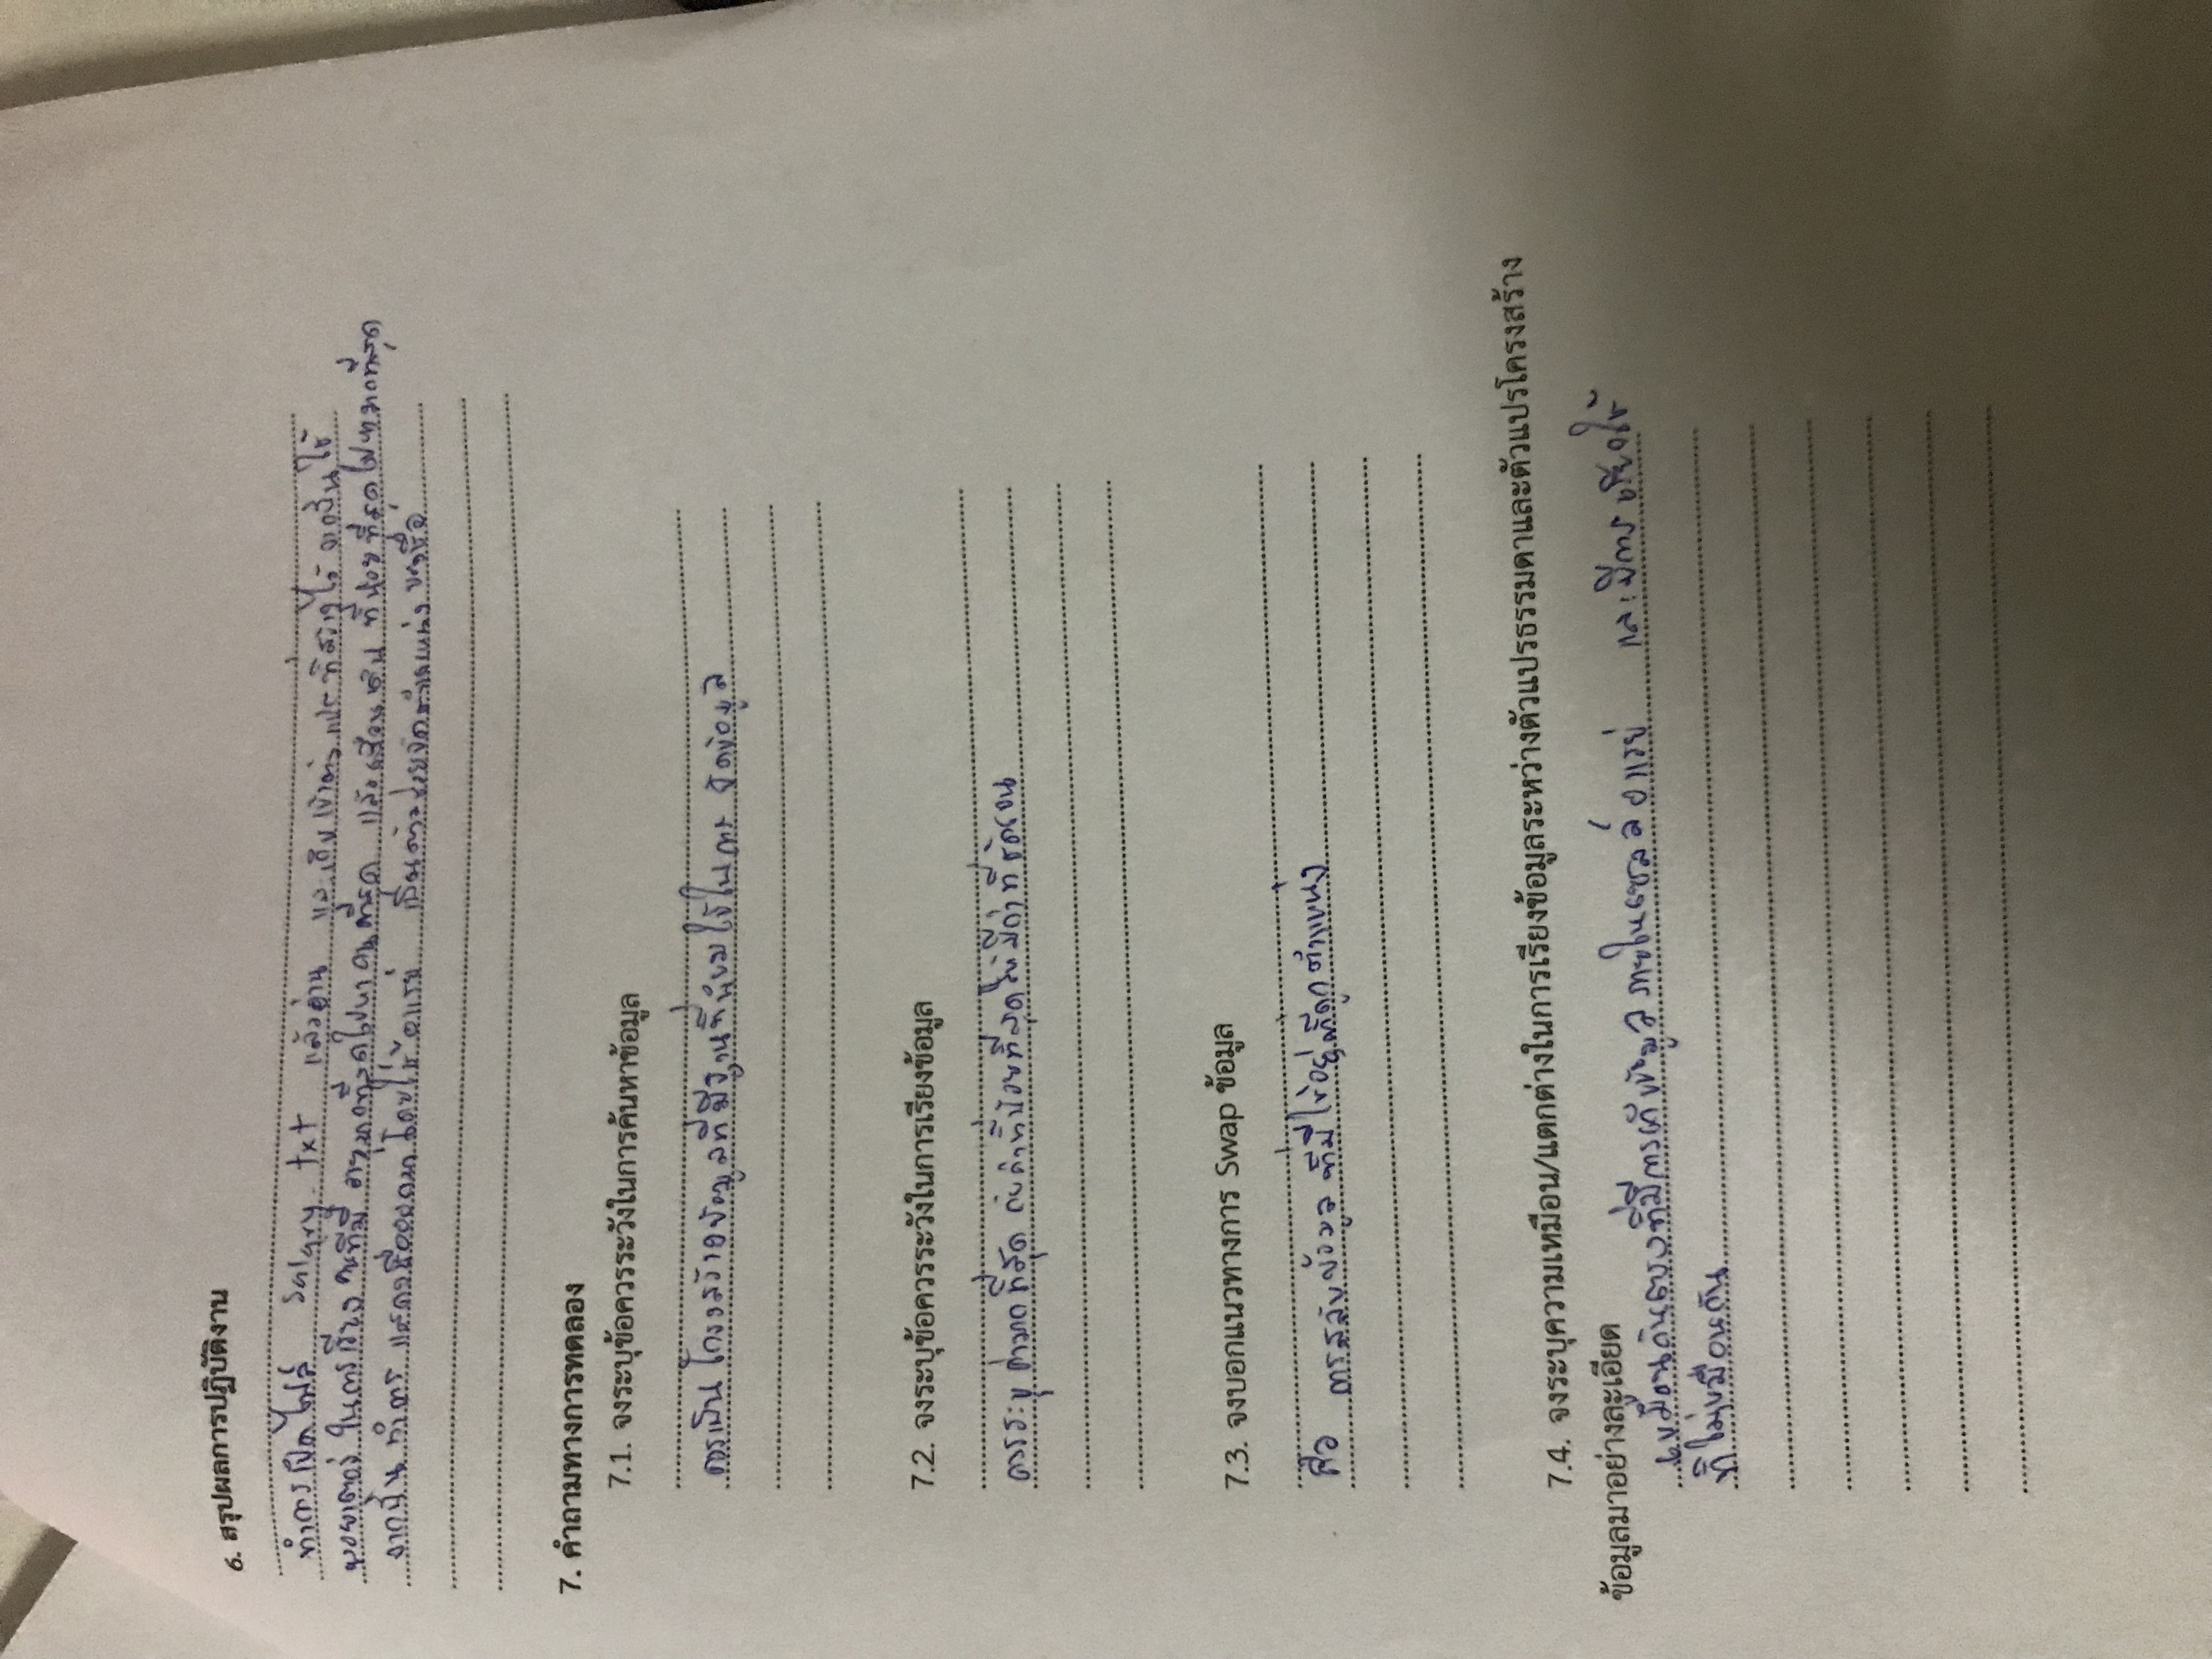 6. สรุปผลการปฏิบัติงาน
ทำการเปิดไฟล์ Salary txt แล้วอ่าน และเก็บเข้าตัวแปร ที่สร้างไว้ จากนั้น ใช้
พอยเตอร์ ในการเรียง คนที่มี อายุมากที่สุดไปหา ที่สุด แล้ว เดือน ที่น้อยที่สุดไปหามากที่สุด
จากนั้น ทำการ แสดงชื่อออกมา โดยใช้อาเรย์ ตำแหน่ง ของชื่อ
7. คำถามทางการทดลอง
7.1. จงระบุข้อควรระวังในการค้นหาข้อมูล
ควรเป็น โครงสร้างข้อมูลที่มีฐานที่นิยมใช้ในการ จัดข้อมูล
7.2. จงระบุข้อควรระวังในการเรียงข้อมูล
ควรระบุ ค่ามากที่สุด กับค่าที่น้อยที่สุดให้มีค่าที่ชัดเจน
7.3. จงบอกแนวทางการ Swap ข้อมูล
คือ การสลับข้อมูล ที่มี ให้อยู่ที่ถูกตำแหน่ง
7.4. จงระบุความเหมือน/แตกต่างในการเรียงข้อมูลระหว่างตัวแปรธรรมดาและตัวแปรโครงสร้าง
ข้อมูลมาอย่างละเอียด
เหมือนกันตรงที่มีการเก็บข้อมูลภายในเซลล์อาเรย์ และมีการเรียกใช้
ที่ไม่เหมือนกัน